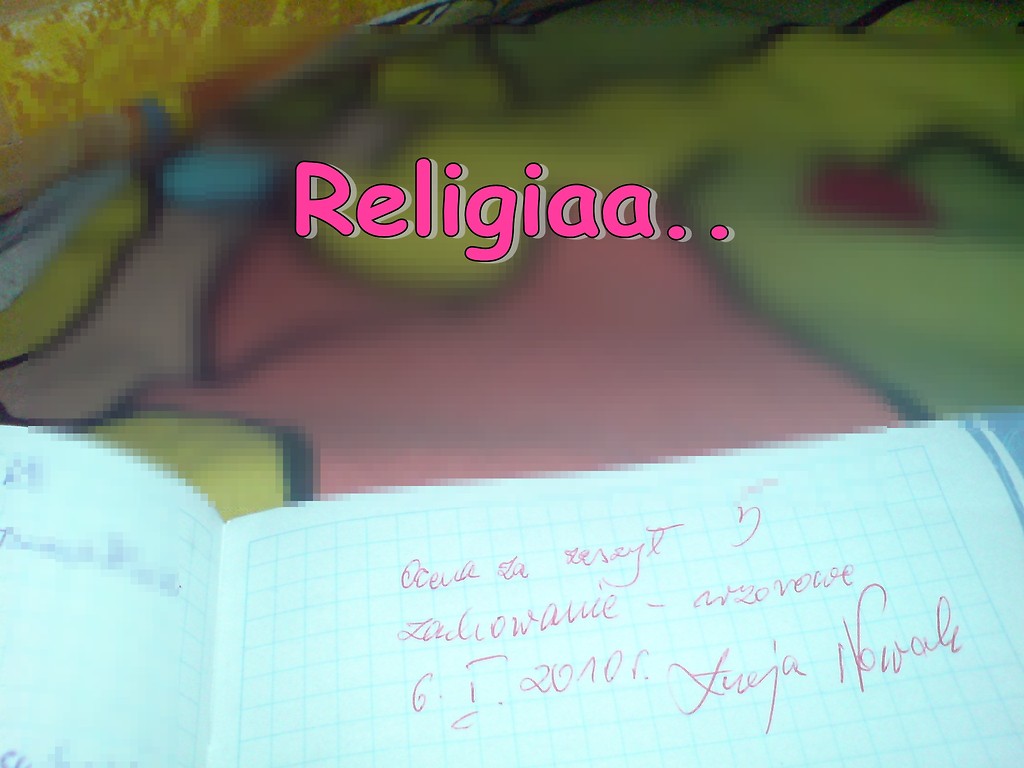 Religiaa..
Ocena za zeszyt 5
zachowanie - wzorowe
6. I. 2010r. Nowak